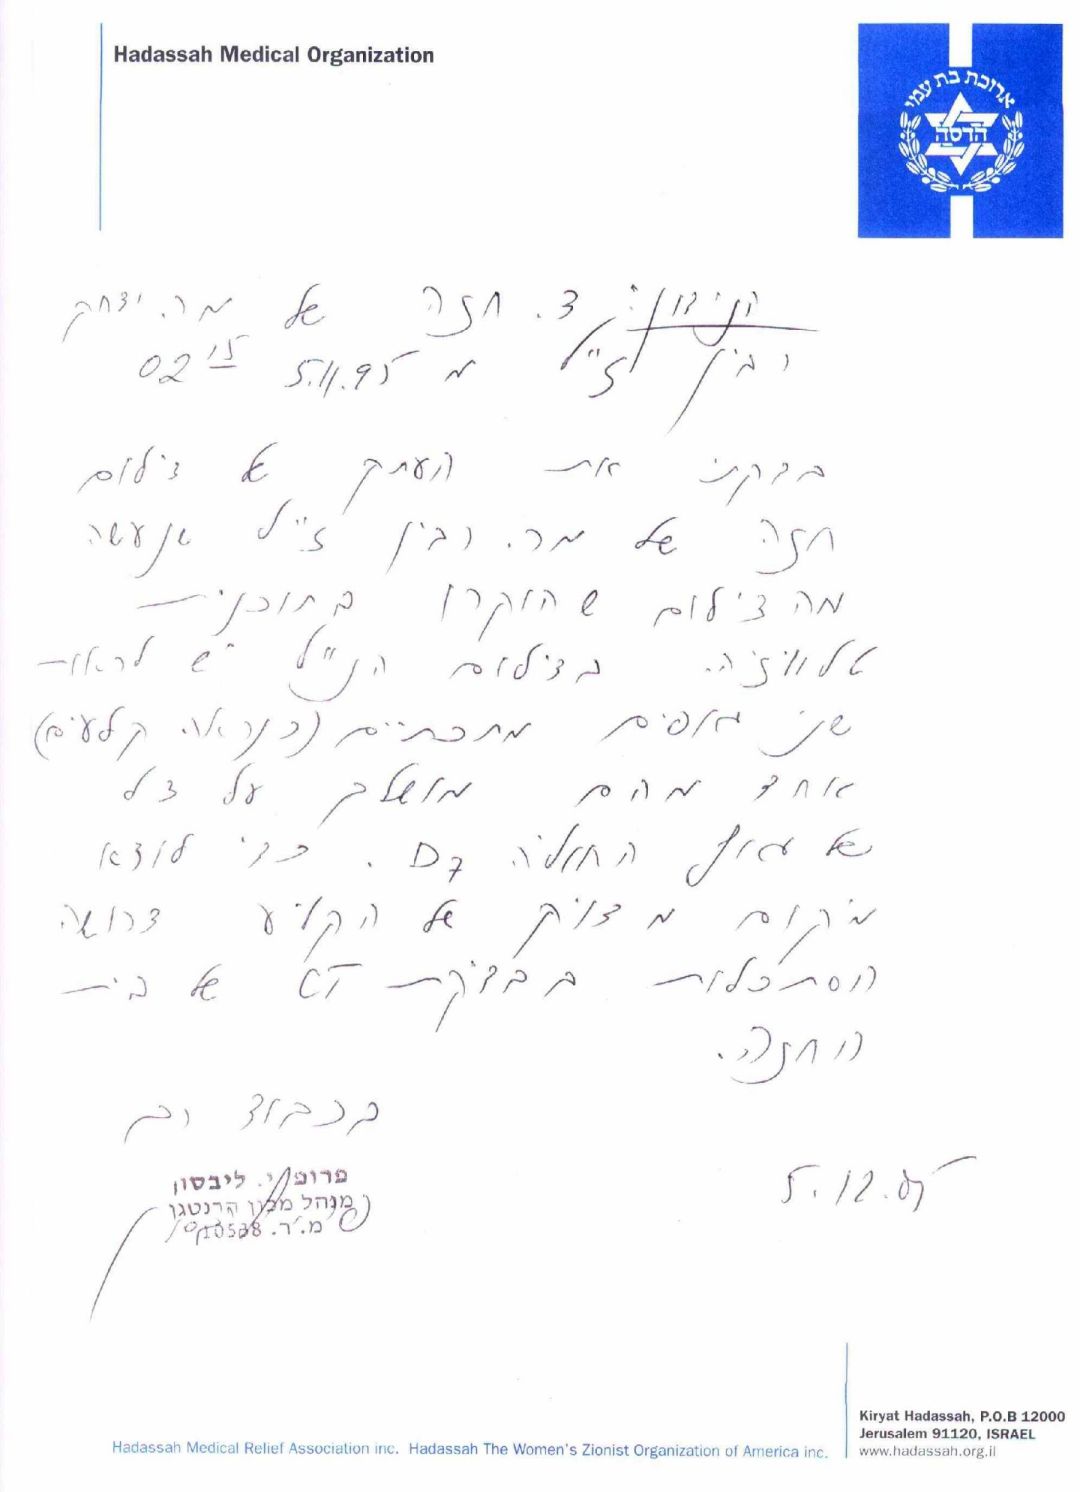 Hadassah Medical Organization
ארוכת בת עמי
הדסה
הנידון: צ. חזה של מר. יצחק
רבין ז"ל מ 5.11.95 02 15
בדקתי את העתק של צילום
חזה של מר. רבין ז"ל שנעשה
מה צילום שהוקרן בתוכנית
טלוויזיה. בצילום הנ"ל יש לראות
שני גופים מתכתיים (כנראה קלעים)
אחד מהם מושלך על צל
של גוף החוליה D7. כדי לוודא
מיקום מדויק של הקליע דרושה
הסתכלות בבדיקת CT של בית
החזה.
בכבוד רב
פרופ' י. ליבסון
מנהל מכון הרנטגן
מ.ר.
5.12.05
Kiryat Hadassah, P.O.B 12000
Jerusalem 91120, ISRAEL
www.hadassah.org.il
Hadassah Medical Relief Association inc. Hadassah The Women's Zionist Organization of America inc.